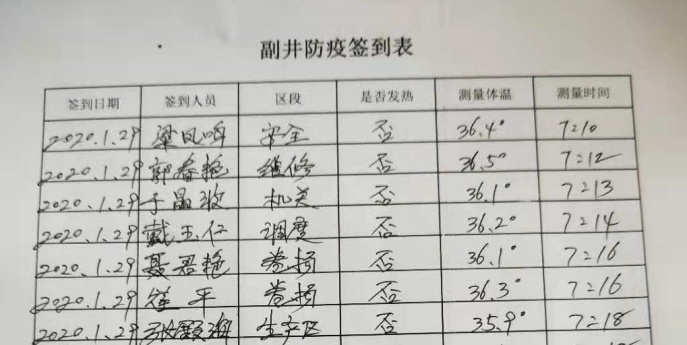 副井防疫签到表
签到日期 签到人员 区段 是否发热 测量体温 测量时间
2020.1.29 梁凤鸣 安全 否 36.4° 7:10
2020.1.29 郭春艳 维修 否 36.5° 7:12
2020.1.29 于晶 机关 否 36.1° 7:13
2020.1.29 戴玉仁 调度 否 36.2° 7:14
2020.1.29 聂君艳 卷扬 否 36.1° 7:16
2020.1.29 平 卷扬 否 36.3° 7:16
2020.1.29 张 生产区 否 35.9° 7:18